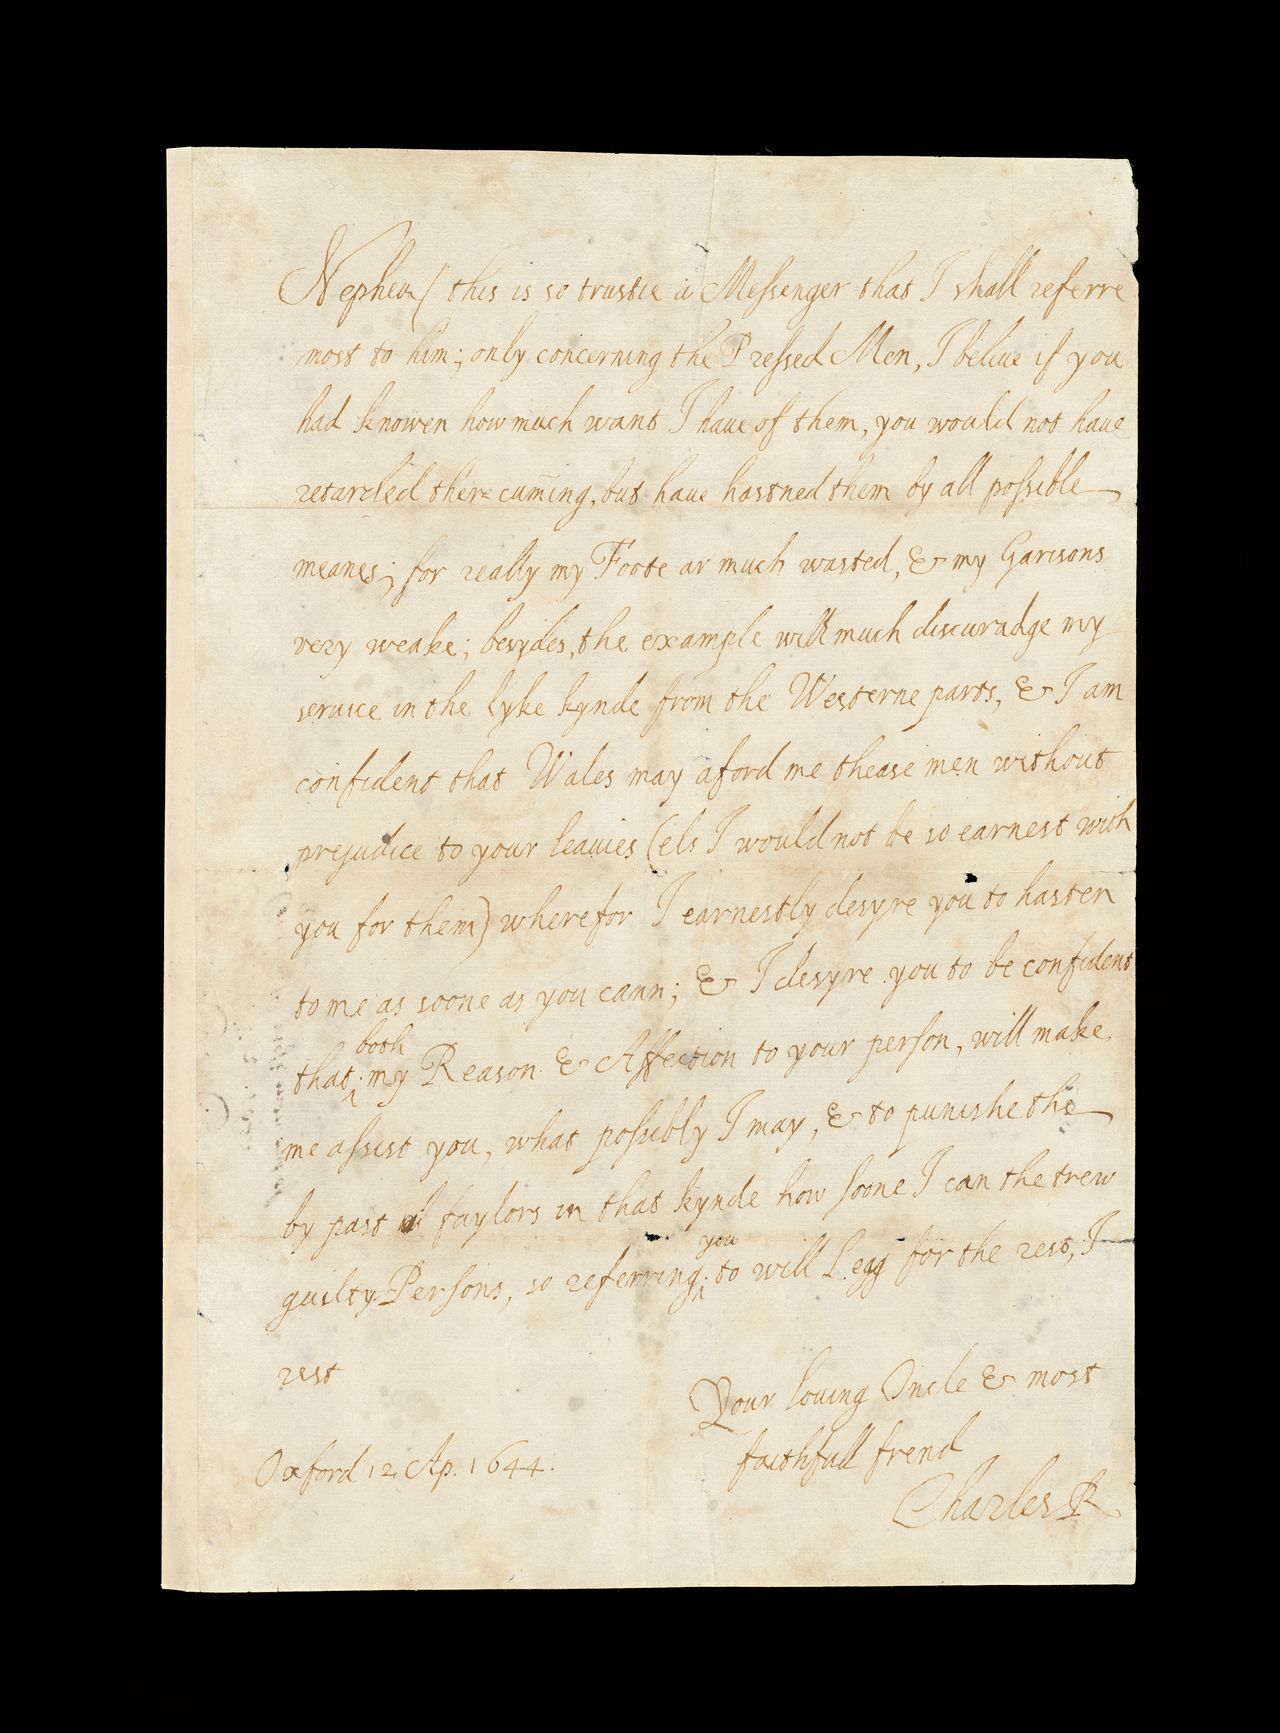 Nepheu/ this is so trustie a Messenger that I shall referre
most to him; only concerning the Pressed Men, I beliue if you
had knowen how much want I haue of them, you would not haue
retarded there cum̄ing, but haue hastned them by all possible
meanes; for really my Foote ar much wasted, & my Garisons
very weake; besydes, the example will much discuradge my
seruice in the lyke kynde from the Westerne parts, & I am
confident that Wales may aford me thease men without
prejudice to your leauies (els I would not be so earnest with
you for them) wherefor I earnestly desyre you to hasten
to me as soone as you cann; & I desyre you to be confident
that both my Reason & Affection to your person, will make
me assist you, what possibly I may, & to punishe the
by past faylors in that kynde how soone I can the trew
guilty Persons, so referring you to will Legg for the rest, I
rest
Your louing Oncle & most
faithfull frend
Charles R
Oxford 12 Ap. 1644.